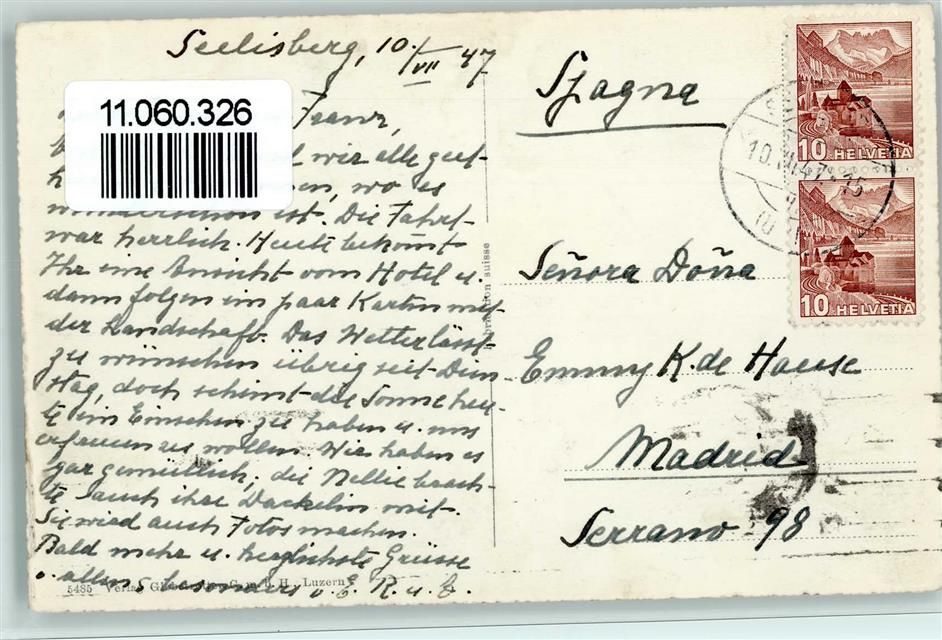 Seelisberg, 10/VII 47
11.060.326
Franz,
wir alle gut
wo es
wunderschön ist. Die Fahrt
war herrlich. Heute bekommt
Ihr eine Ansicht vom Hotel u.
dann folgen ein paar Karten mit
der Landschaft. Das Wetter lässt
zu wünschen übrig seit Diens-
tag, doch scheint die Sonne heu-
te ein Einsehen zu haben u. uns
erfreuen zu wollen. Wir haben es
gar gemütlich, die Nellie brach-
te auch ihre Dackelin mit.
Sie wird auch Fotos machen.
Bald mehr u. herzlichste Grüsse
allen, besonders v. E. R. u. E.
5485 Verlag G.m.b.H., Luzern
suisse
Spagna
Señora Doña
Emmy K. de Hause
Madrid
Serrano 98
10 HELVETIA
10 HELVETIA
10.VII.47-15